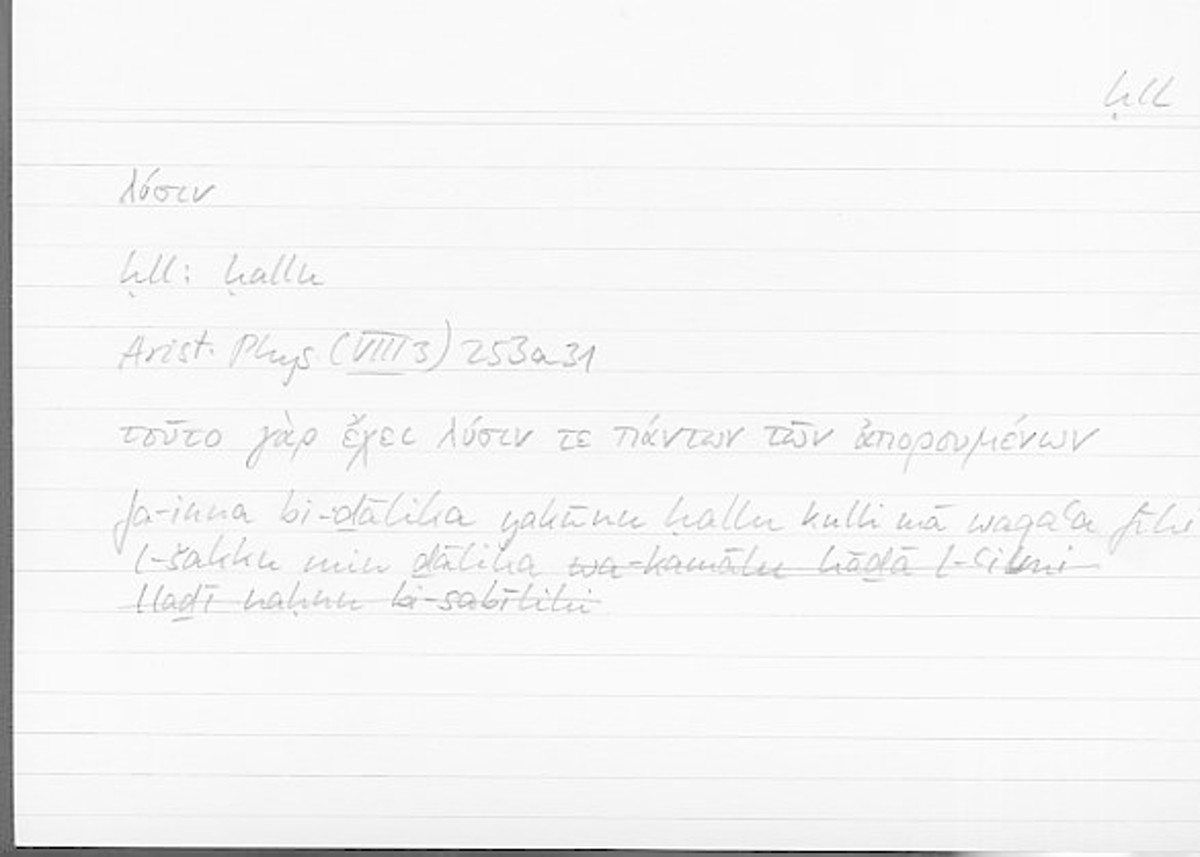 ḥll
λύσιν
ḥll: ḥallu
Arist. Phys (VIII 3) 253a31
τοῦτο γὰρ ἔχει λύσιν τε πάντων τῶν ἀπορουμένων
fa-inna bi-ḏālika yakūnu ḥallu kulli mā waqaʿa fīhi
l-šakku min ḏālika wa-kamālu hāḏā l-ʿilmi
llaḏī naḥnu bi-sabīlihi